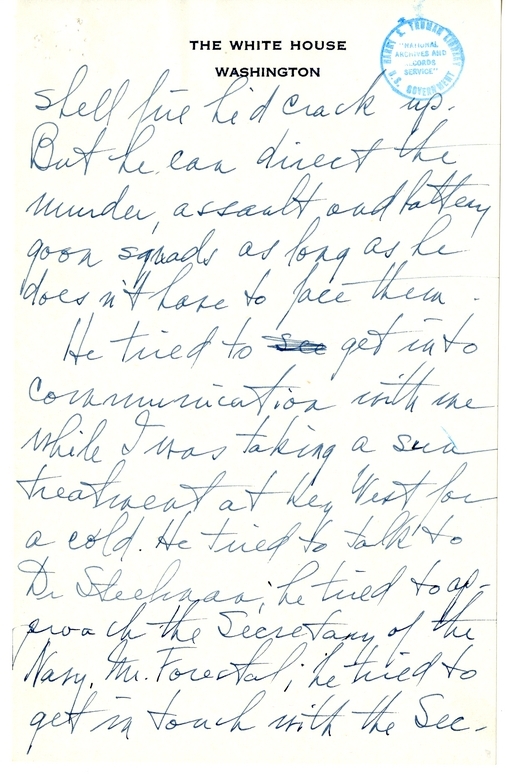 THE WHITE HOUSE
WASHINGTON
HARRY S. TRUMAN LIBRARY
"NATIONAL
ARCHIVES AND
RECORDS
SERVICE"
U.S. GOVERNMENT
shell fire he'd crack up.
But he can direct the
murder, assault and battery
goon squads as long as he
does n't have to face them.
He tried to see get into
communication with me
while I was taking a sun
treatment at Key West for
a cold. He tried to talk to
Dr Steelman; he tried to ap-
proach the Secretary of the
Navy, Mr. Forestal; he tried to
get in touch with the Sec-